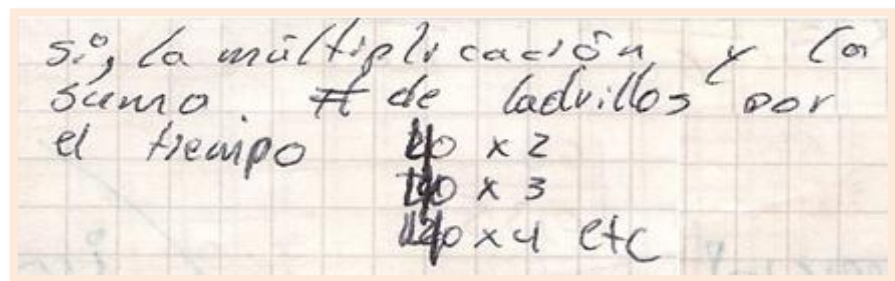 si, la multiplicación y la
suma # de ladrillos por
el tiempo 40 x 2
x 3
x 4 etc